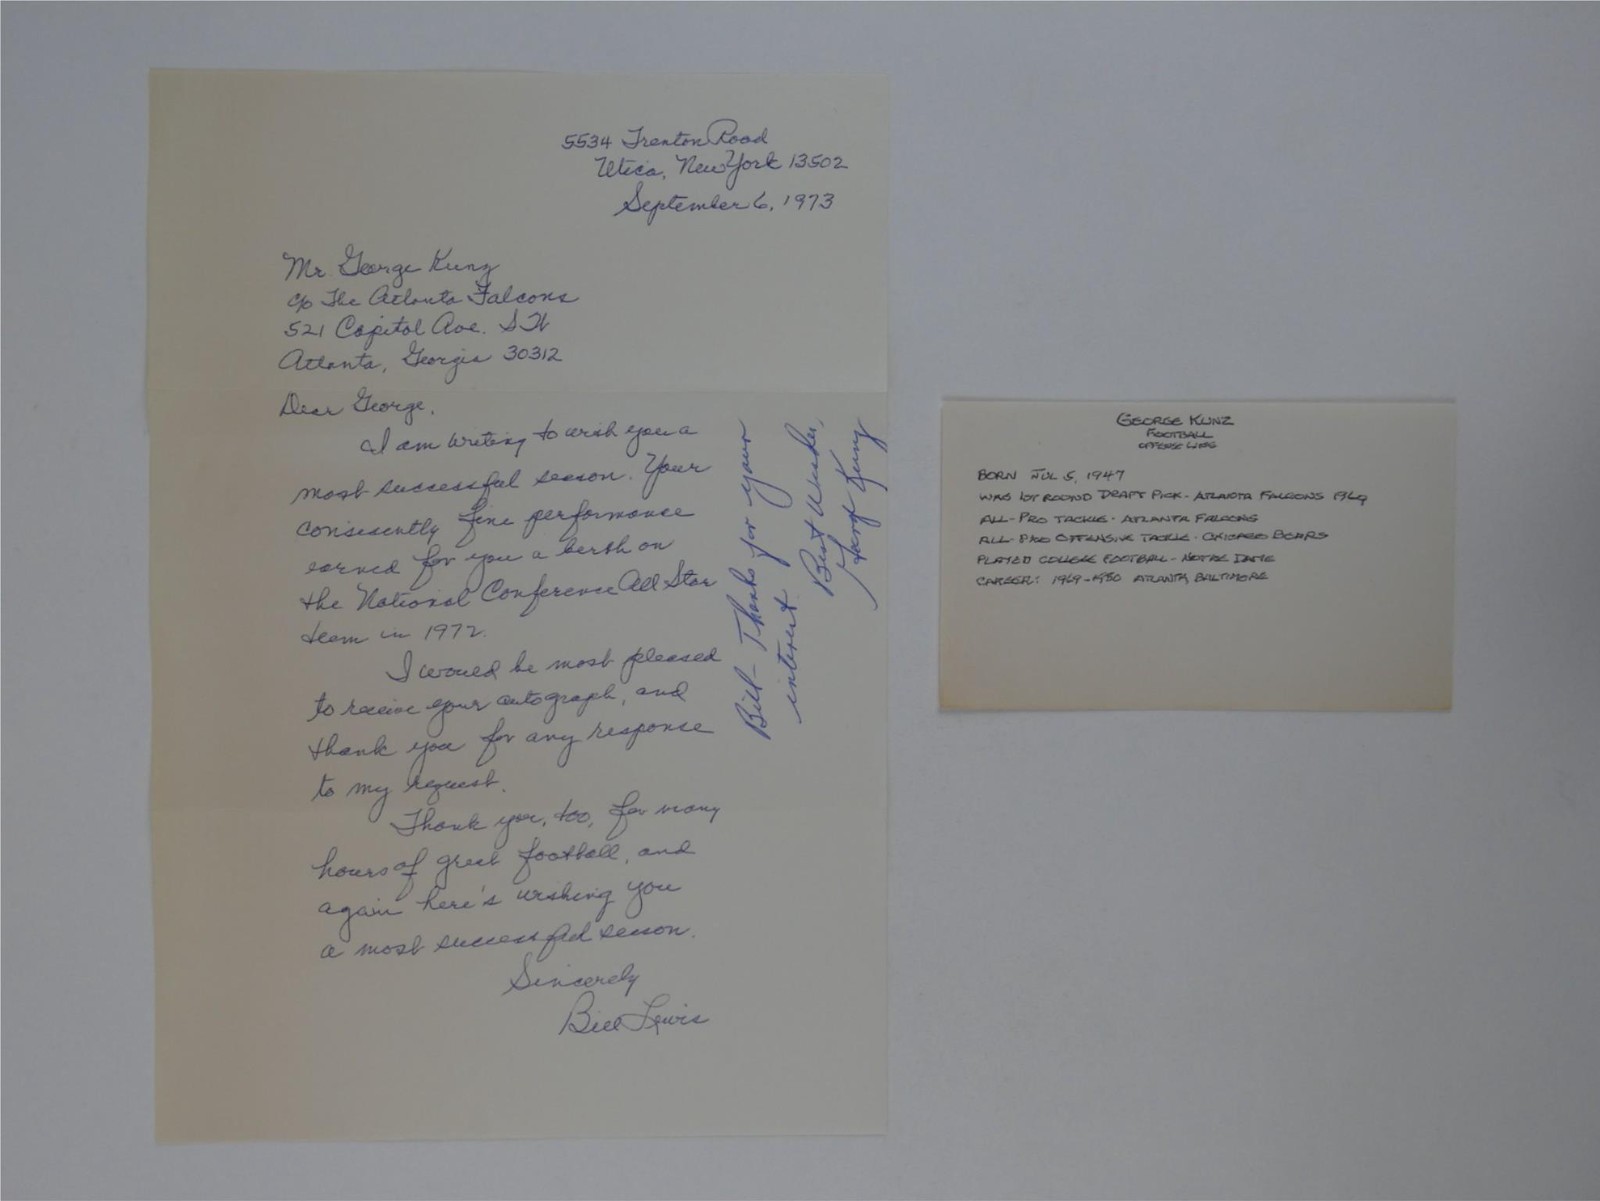 5534 Trenton Road
Utica, New York 13502
September 6, 1973
Mr. George Kunz
c/o The Atlanta Falcons
521 Capitol Ave. SW
Atlanta, Georgia 30312
Dear George,
I am writing to wish you a
most successful season. Your
consisently fine performance
earned for you a berth on
the National Conference All Star
team in 1972.
I would be most pleased
to receive your autograph, and
thank you for any response
to my request.
Thank you, too, for many
hours of great football, and
again here's wishing you
a most successful season.
Sincerely
Bill Lewis
Bill - Thanks for your
interest
Best Wishes,
George Kunz
GEORGE KUNZ
FOOTBALL
OFFENSE LINE
BORN JUL 5, 1947
WAS 1ST ROUND DRAFT PICK - ATLANTA FALCONS 1969
ALL-PRO TACKLE - ATLANTA FALCONS
ALL-PRO OFFENSIVE TACKLE - CHICAGO BEARS
PLAYED COLLEGE FOOTBALL - NOTRE DAME
CAREER: 1969-1980 ATLANTA, BALTIMORE